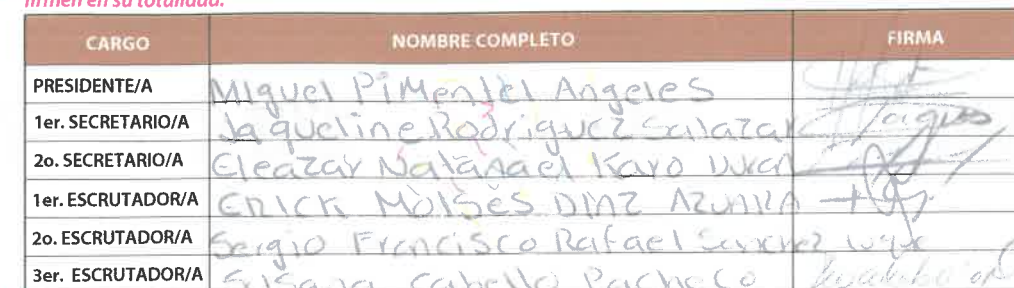 firmen en su totalidad.
CARGO NOMBRE COMPLETO FIRMA
PRESIDENTE/A Miguel Pimentel Angeles
1er. SECRETARIO/A Jaqueline Rodriguez Salazar Jaquis
2o. SECRETARIO/A Eleazar Natanael Karo Duran
1er. ESCRUTADOR/A ERICK MOISÉS DIAZ AZUARA
2o. ESCRUTADOR/A Sergio Francisco Rafael Sanchez Luque
3er. ESCRUTADOR/A Susana Cabello Pacheco